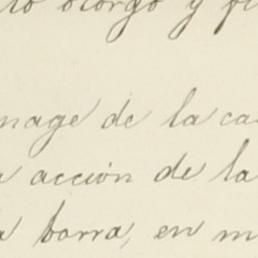 to otorgo y fi
nage de la ca
a acción de la
a barra, en m